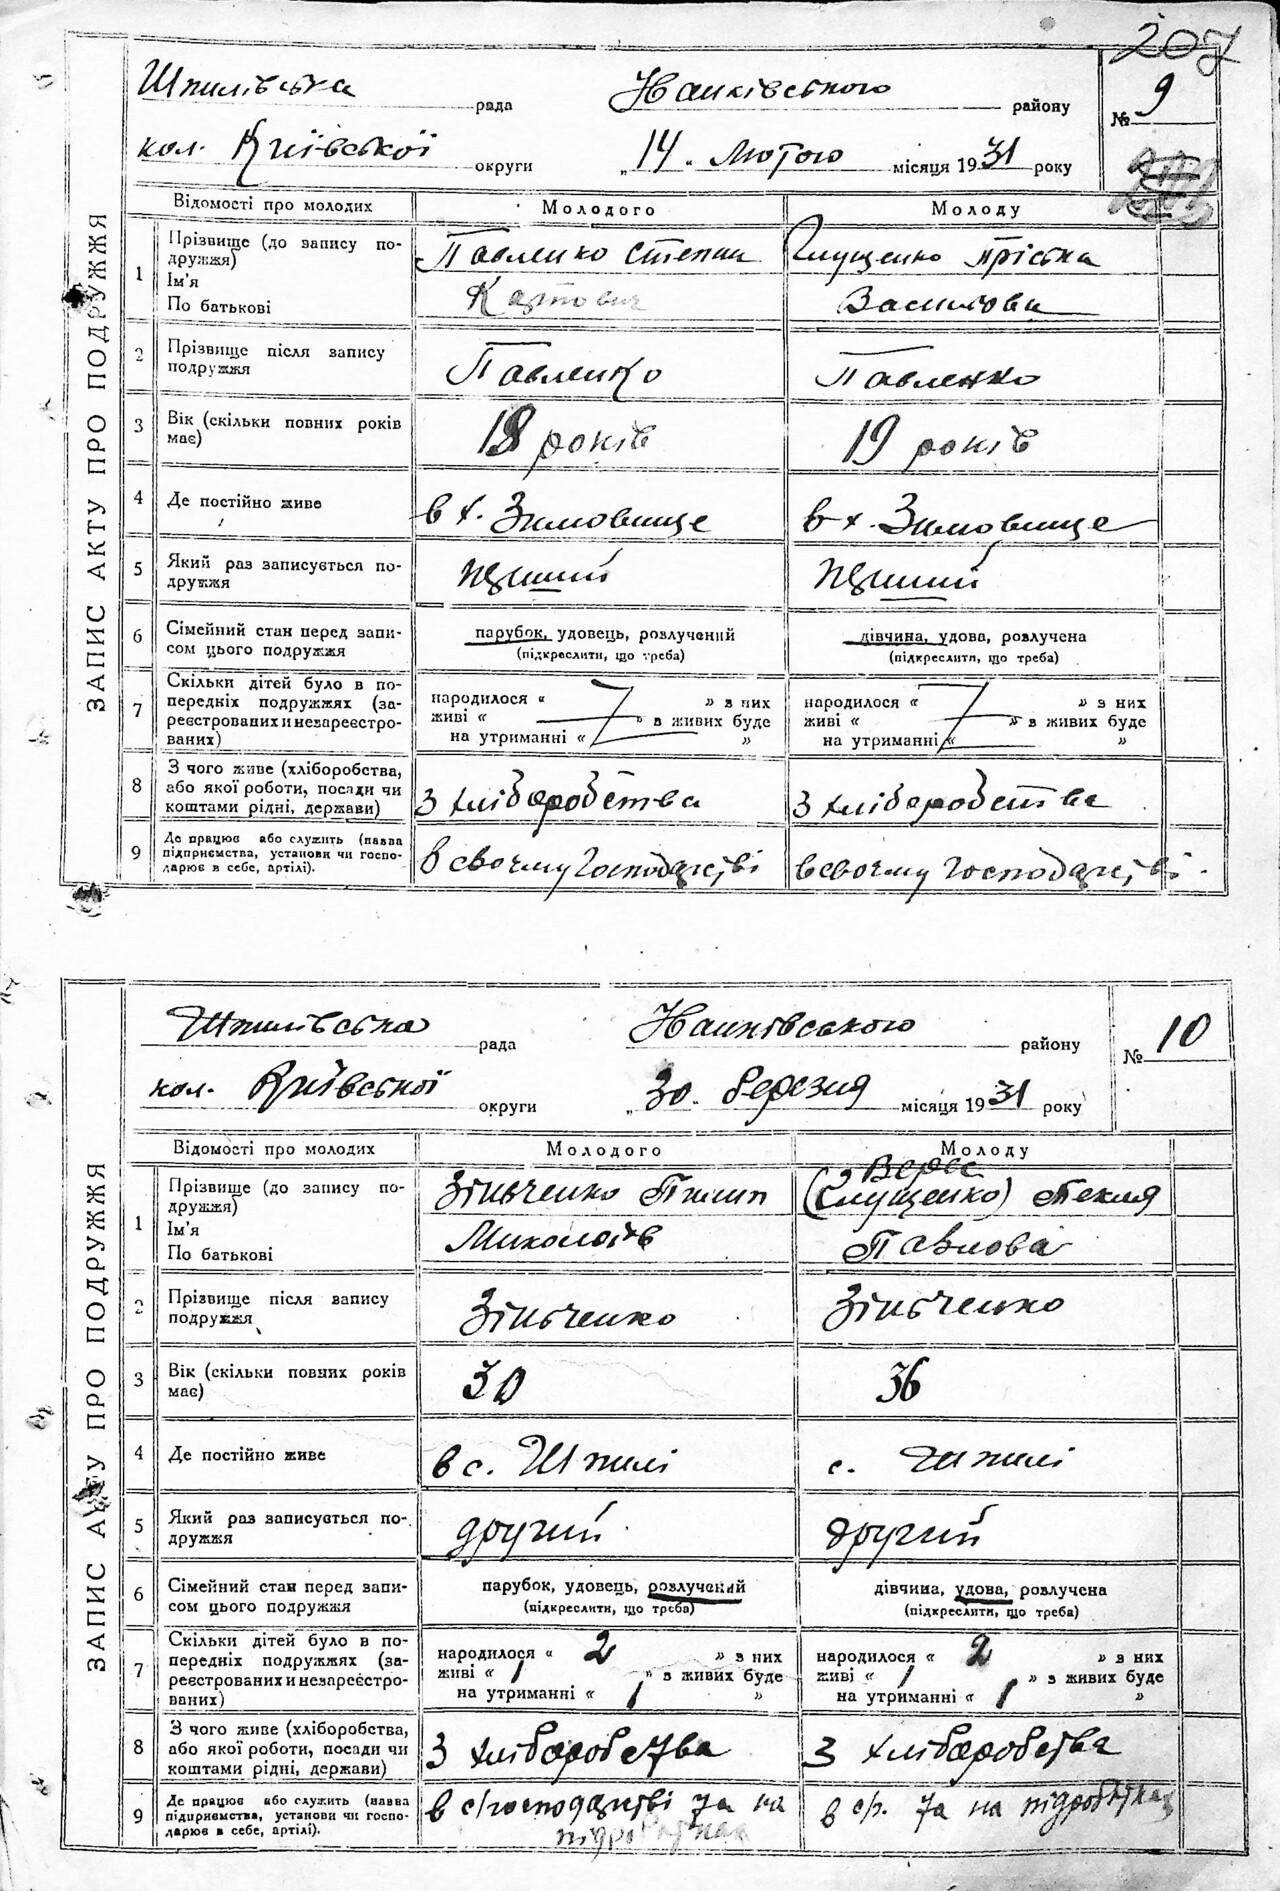 207
Шпилівська рада Іванківського району № 9
кол. Київської округи „14. Лютого місяця 1931 року
ЗАПИС АКТУ ПРО ПОДРУЖЖЯ
Відомості про молодих Молодого Молоду
1 Прізвище (до запису по-
дружжя) Павленко Степан Глущенко Пріська
Ім'я
По батькові Василова
2 Прізвище після запису
подружжя Павленко Павленко
3 Вік (скільки повних років
має) 18 років 19 років
4 Де постійно живе в х. Зимовище в х. Зимовище
5 Який раз записується по-
дружжя перший перший
6 Сімейний стан перед запи-
сом цього подружжя парубок, удовець, розлучений дівчина, удова, розлучена
(підкреслити, що треба) (підкреслити, що треба)
7 Скільки дітей було в по-
передніх подружжях (за-
реєстрованих и незареєстро-
ваних) народилося « » з них народилося « » з них
живі « » в живих буде живі « » в живих буде
на утриманні « » на утриманні « »
8 З чого живе (хліборобства,
або якої роботи, посади чи
коштами рідні, держави) З хліборобства З хліборобства
9 Де працює або служить (назва
підприємства, установи чи госпо-
дарює в себе, артілі). в своєму господарстві в своєму господарстві.
Шпилівська рада Іванківського району № 10
кол. Київської округи „30. березня місяця 1931 року
ЗАПИС АКТУ ПРО ПОДРУЖЖЯ
Відомості про молодих Молодого Молоду
Верес
1 Прізвище (до запису по-
дружжя) Зіньченко Пилип (Глущенко) Текля
Ім'я
По батькові Миколаїв Павлова
2 Прізвище після запису
подружжя Зіньченко Зіньченко
3 Вік (скільки повних років
має) 30 36
4 Де постійно живе в с. Шпилі с. Шпилі
5 Який раз записується по-
дружжя другий другий
6 Сімейний стан перед запи-
сом цього подружжя парубок, удовець, розлучений дівчина, удова, розлучена
(підкреслити, що треба) (підкреслити, що треба)
7 Скільки дітей було в по-
передніх подружжях (за-
реєстрованих и незареєстро-
ваних) народилося « 2 » з них народилося « 2 » з них
живі « 1 » в живих буде живі « 1 » в живих буде
на утриманні « 1 » на утриманні « 1 »
8 З чого живе (хліборобства,
або якої роботи, посади чи
коштами рідні, держави) З хліборобства З хліборобства
9 Де працює або служить (назва
підприємства, установи чи госпо-
дарює в себе, артілі). в с/господарстві та на підробітках в с/г. та на підробітках